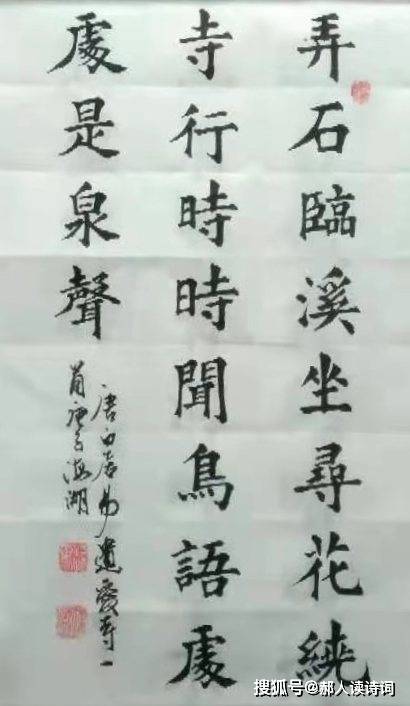 弄石臨溪坐尋花繞
寺行時時聞鳥語處
處是泉聲
唐白居易遺愛寺一
首庚子海湖
搜狐号@郝人读诗词